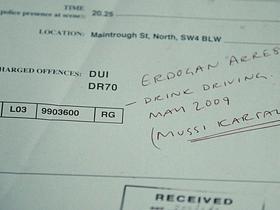 TIME
police presence at scene): 20.25
LOCATION: Maintrough St, North, SW4 BLW
CHARGED OFFENCES: DUI
DR70
L03 9903600 RG
ERDOGAN ARRES
DRINK DRIVING.
MAY 2009
(MUSSI KARTAL
RECEIVED